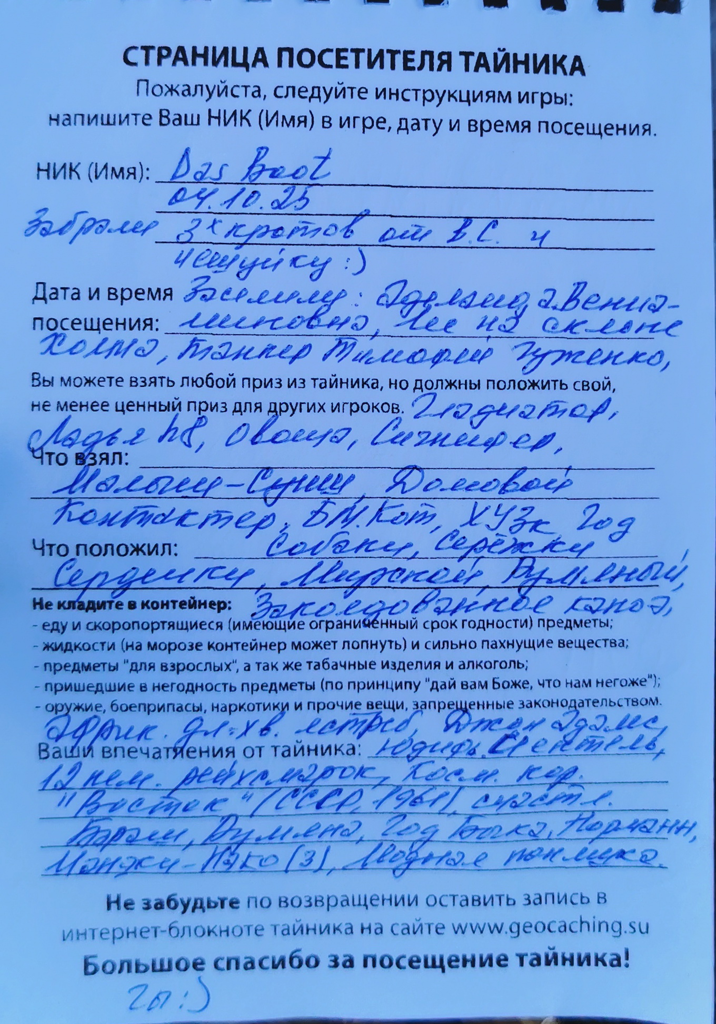 СТРАНИЦА ПОСЕТИТЕЛЯ ТАЙНИКА
Пожалуйста, следуйте инструкциям игры:
напишите Ваш НИК (Имя) в игре, дату и время посещения.
НИК (Имя): Das Boot
04.10.25
Забрали 3х кротов от В.С. и
чешуйку :)
Дата и время Заселили:
посещения: Лес на склоне
Холма, Танкер Тимофей Гуженко,
Вы можете взять любой приз из тайника, но должны положить свой,
не менее ценный приз для других игроков. Гладиатор,
Ладья h8, Овощ, Сигнифер,
Что взял:
Малыш-Суши, Домовой
Контактер, БМ.Кот, Год
Что положил: Собаки, Серёжки
Сердешки, Мирской, Румяный,
Не кладите в контейнер: Заколдованное каноэ,
- еду и скоропортящиеся (имеющие ограниченный срок годности) предметы;
- жидкости (на морозе контейнер может лопнуть) и сильно пахнущие вещества;
- предметы "для взрослых", а так же табачные изделия и алкоголь;
- пришедшие в негодность предметы (по принципу "дай вам Боже, что нам негоже");
- оружие, боеприпасы, наркотики и прочие вещи, запрещенные законодательством.
Африк. дл.-хв. ястреб, Джон Адамс,
Ваши впечатления от тайника:
12 нем. рейхсмарок, Косм. кор.
"Восток" (СССР, 1961), счастл.
Румяна, Год Быка, Норманн,
Манэки-Нэко (3), Модная
Не забудьте по возвращении оставить запись в
интернет-блокноте тайника на сайте www.geocaching.su
Большое спасибо за посещение тайника!
:)